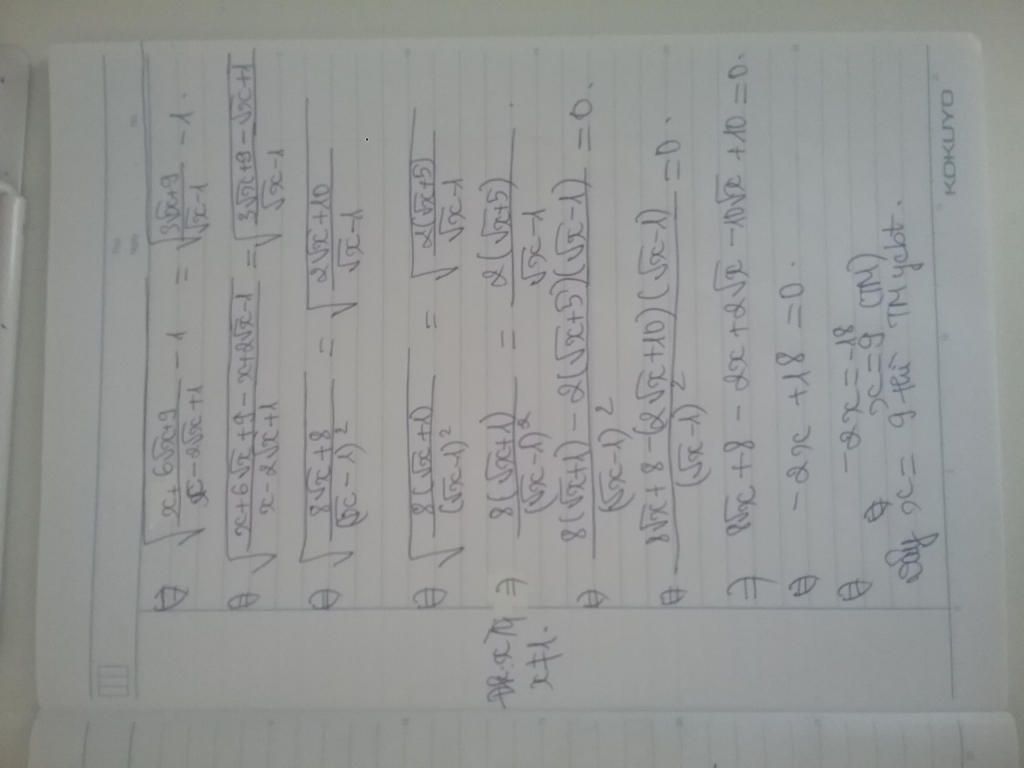 ⇔ √((x+6√x+9)/(x-2√x+1) - 1) = √((3√x+9)/(√x-1) - 1).
⇔ √((x+6√x+9-x+2√x-1)/(x-2√x+1)) = √((3√x+9-√x+1)/(√x-1))
⇔ √((8√x+8)/(√x-1)²) = √((2√x+10)/(√x-1))
⇔ √(8(√x+1)/(√x-1)²) = √(2(√x+5)/(√x-1))
⇒ 8(√x+1)/(√x-1)² = 2(√x+5)/(√x-1).
x≠1.
⇔ (8(√x+1)-2(√x+5)(√x-1))/(√x-1)² = 0.
⇔ (8√x+8-(2√x+10)(√x-1))/(√x-1)² = 0.
⇒ 8√x+8-2x+2√x-10√x+10=0.
⇔ -2x+18=0.
⇔ -2x=-18
⇔ x=9 (TM)
Vậy x=9 thì TMycbt.
KOKUYO